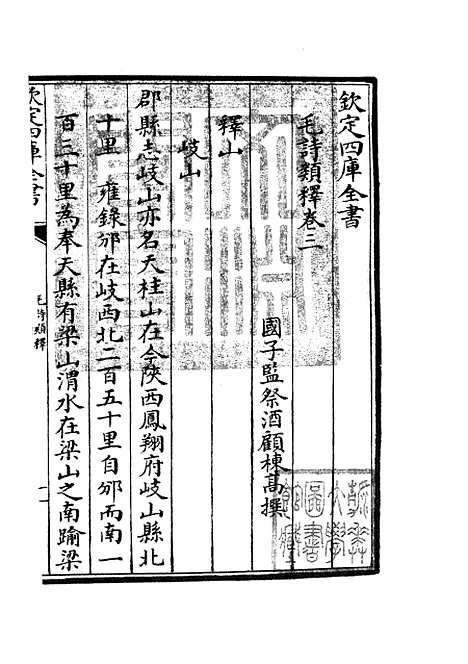 欽定四庫全書
毛詩類釋卷三
國子監祭酒顧棟高撰
釋山
岐山
郡縣志岐山亦名天柱山在今陝西鳳翔府岐山縣北
十里　雍錄邠在岐西北二百五十里自邠而南一
百三十里為奉天縣有梁山渭水在梁山之南踰梁
欽定四庫全書
毛詩類釋
一